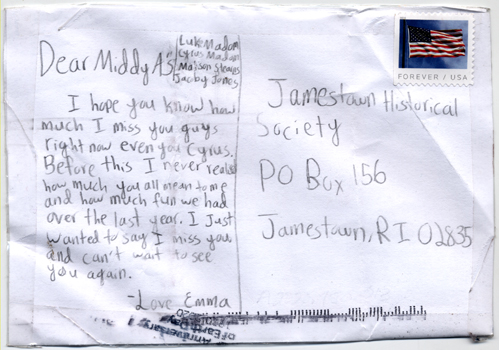 Dear Middy A's
Luke Madam
Cyrus Madam
Jacby Jones
I hope you know how
much I miss you guys
right now even you Cyrus.
Before this I never realis
how much you all mean to me
and how much fun we had
over the last year. I Just
wanted to say I miss you
and can't wait to see
you again.
-Love Emma
FOREVER / USA
Jamestown Historical
Society
PO Box 156
Jamestown, RI 02835
Earth Day
Anniversary